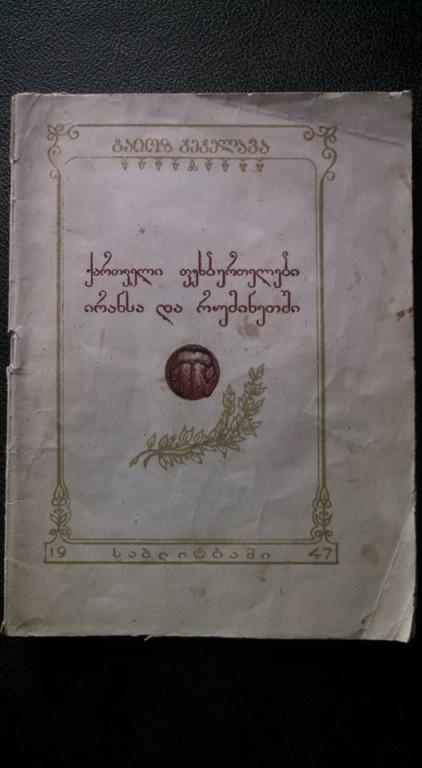 გაიოზ ჯეჯელავა
ქართველი ფეხბურთელები
ირანსა და რუმინეთში
19 საბლიტგამი 47